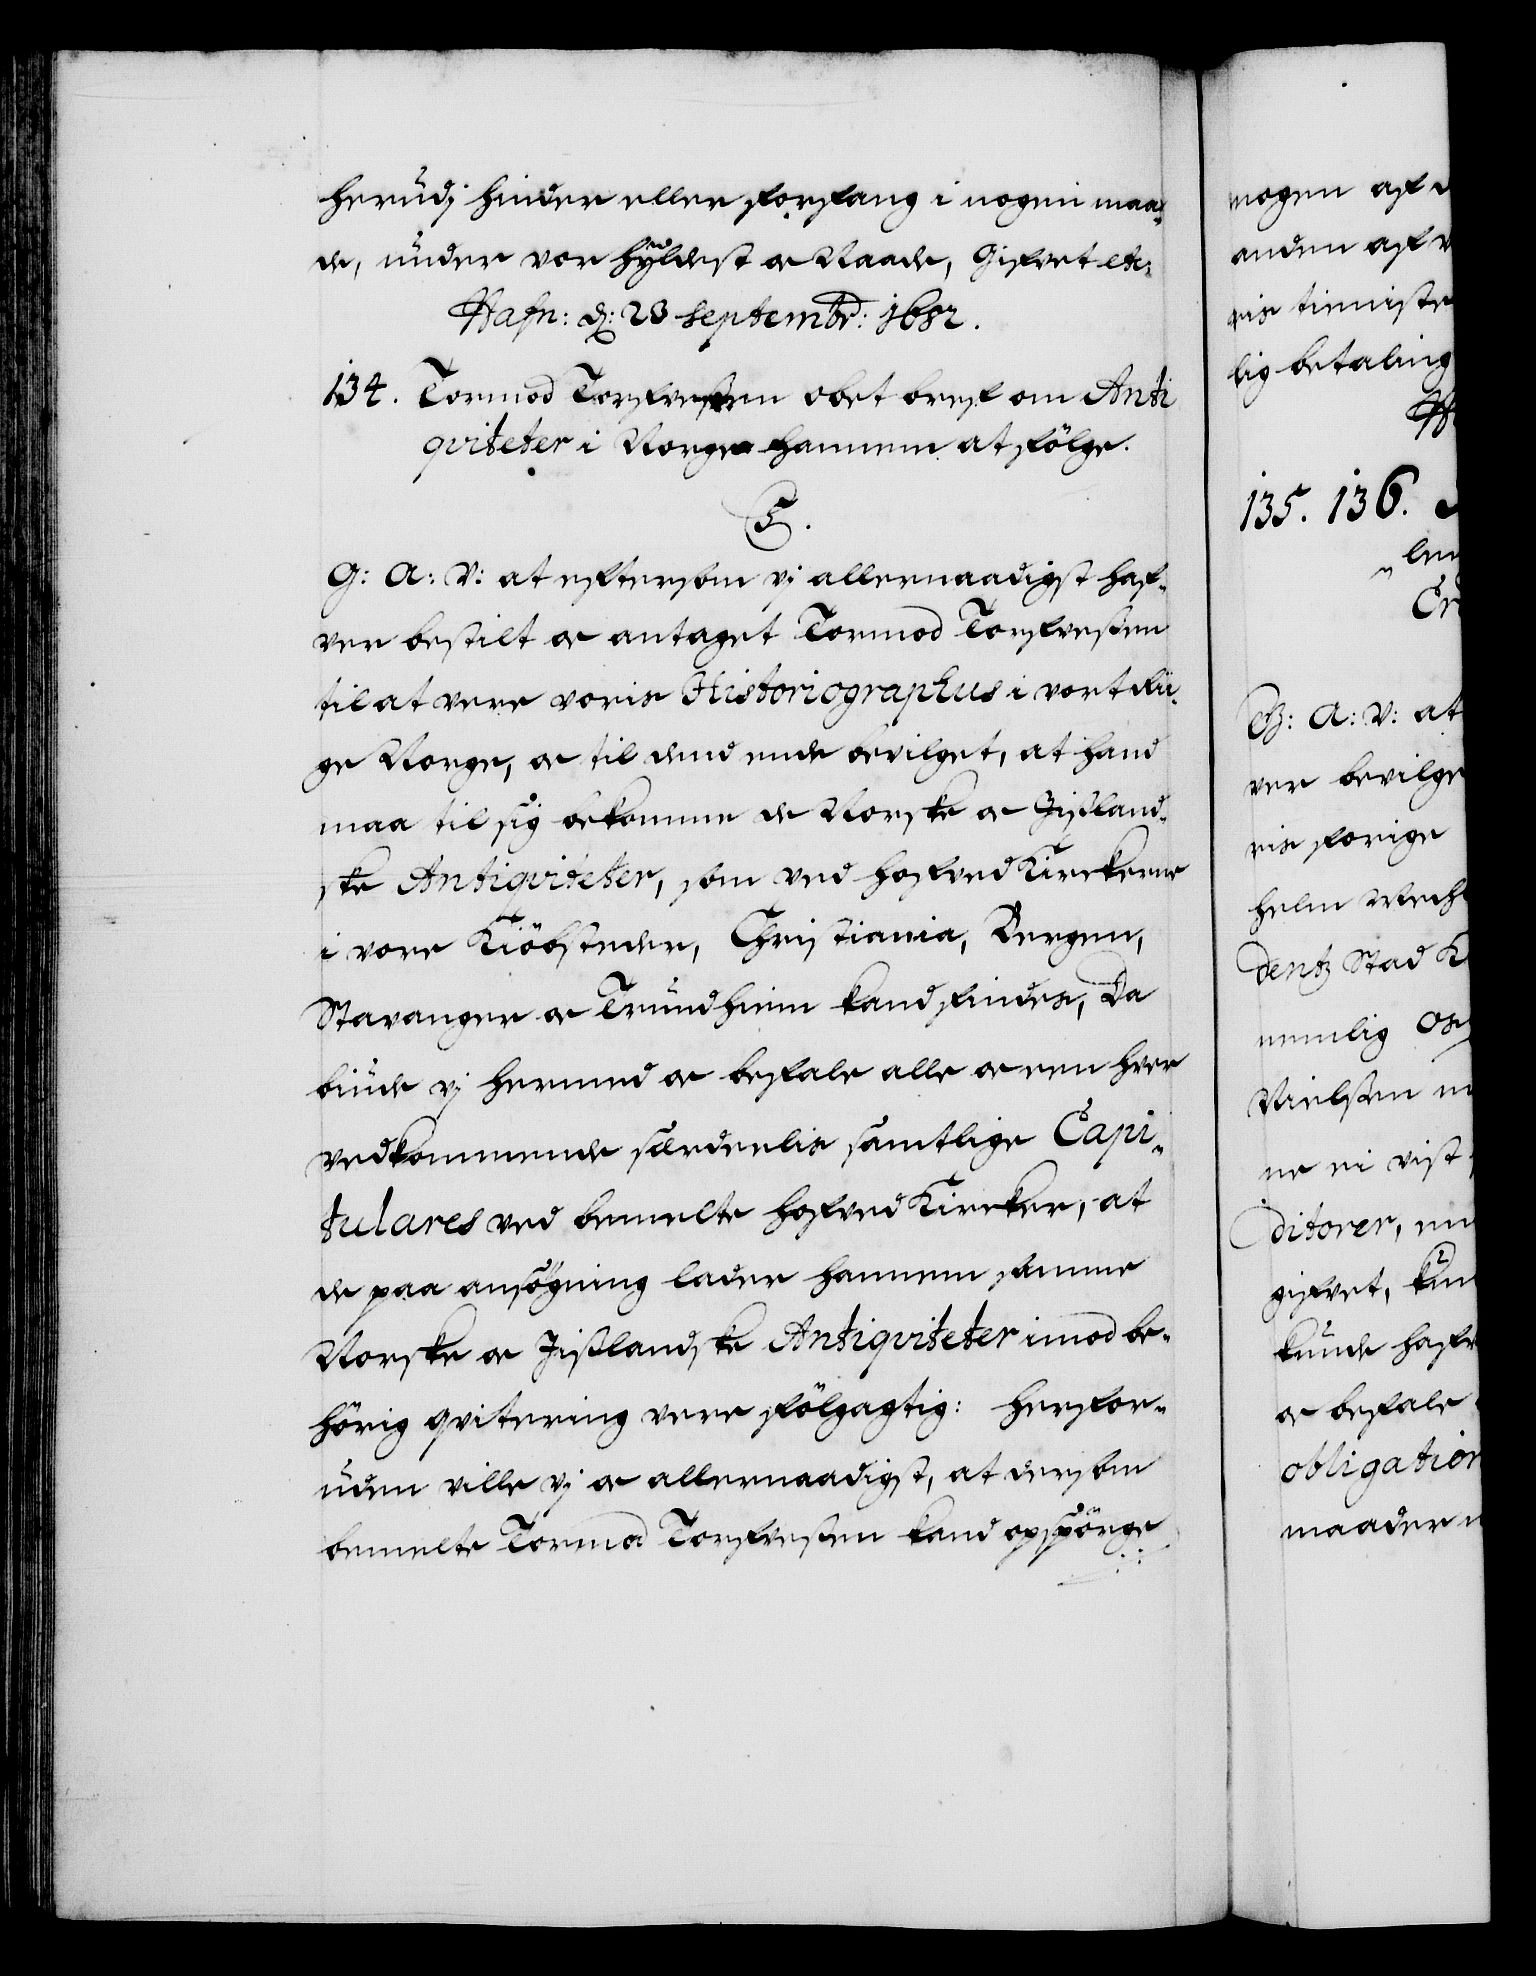 herudj hinder eller forfang i nogen maa-
de, under vor hyldest oc Naade, Gifvet etc:
Hafn: d: 23 Septembr: 1682.
134. Tormod Torfvesen obet bref om Anti
qviteter i Norge hannem at fölge.
C5.
G: A: V: at eftersom vj allernaadigst haf-
ver bestilt oc antaget Tormod Torfvesen
til at vere voris Historiographus i vort Rii-
ge Norge, oc til dend ende bevilget, at hand
maa til sig bekomme de Norske oc Jissland-
ske Antiqviteter, som ved hofved Kirckerne
i vore Kiöbsteder, Christiania, Bergen,
Stavanger oc Trundhiem kand findes, Da
biude vj hermed oc befale alle oc een hver
vedkommende særdeelis samtlige Capi-
tulares ved bemelte hofved Kircker, at
de paa ansögning lader hannem samme
Norske oc Jisslandske Antiqviteter imod be-
hörig qvitering vere fölgagtig: herfor-
uden ville vj oc allernaadigst, at dersom
bemelte Tormod Torfvesen kand opspörge
nogen af
anden af
ris tieniste
lig betaling
135. 136.
G: A: V: at
ver bevilge
ris forige
helm
dentz Stad K
nemlig
Nielsen
ne ei vist
ditorer, en
gifvet, kun
kunde hafv
oc befale
obligation
maader